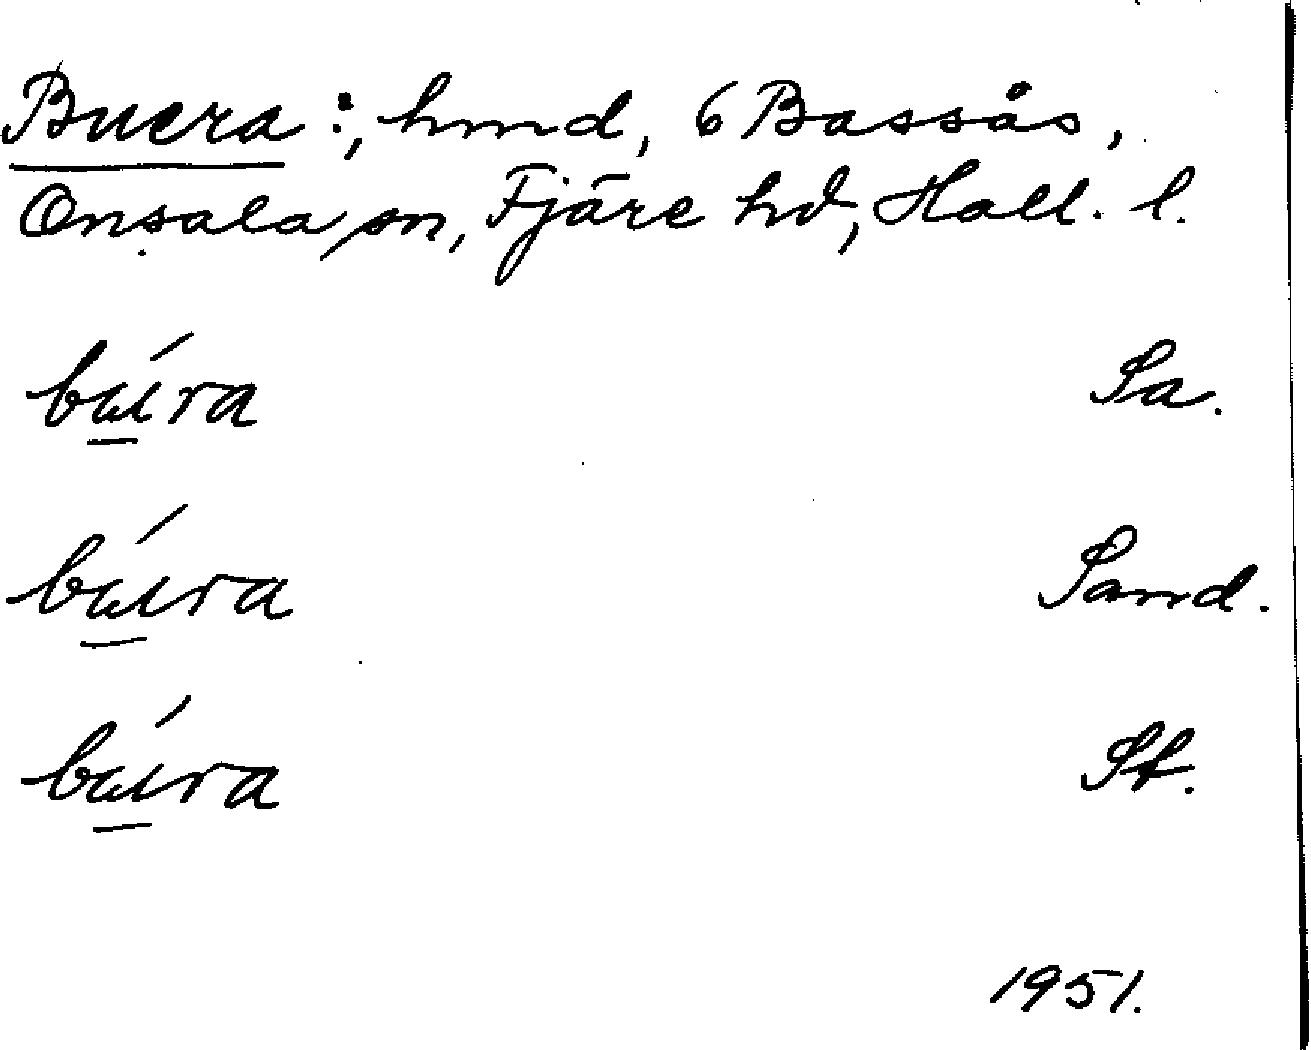 Buera :, hmd, 6 Bassås,
Onsala sn, Fjäre hd, Hall. l.
búıra Sa.
búıra Sand.
búıra St.
1951.